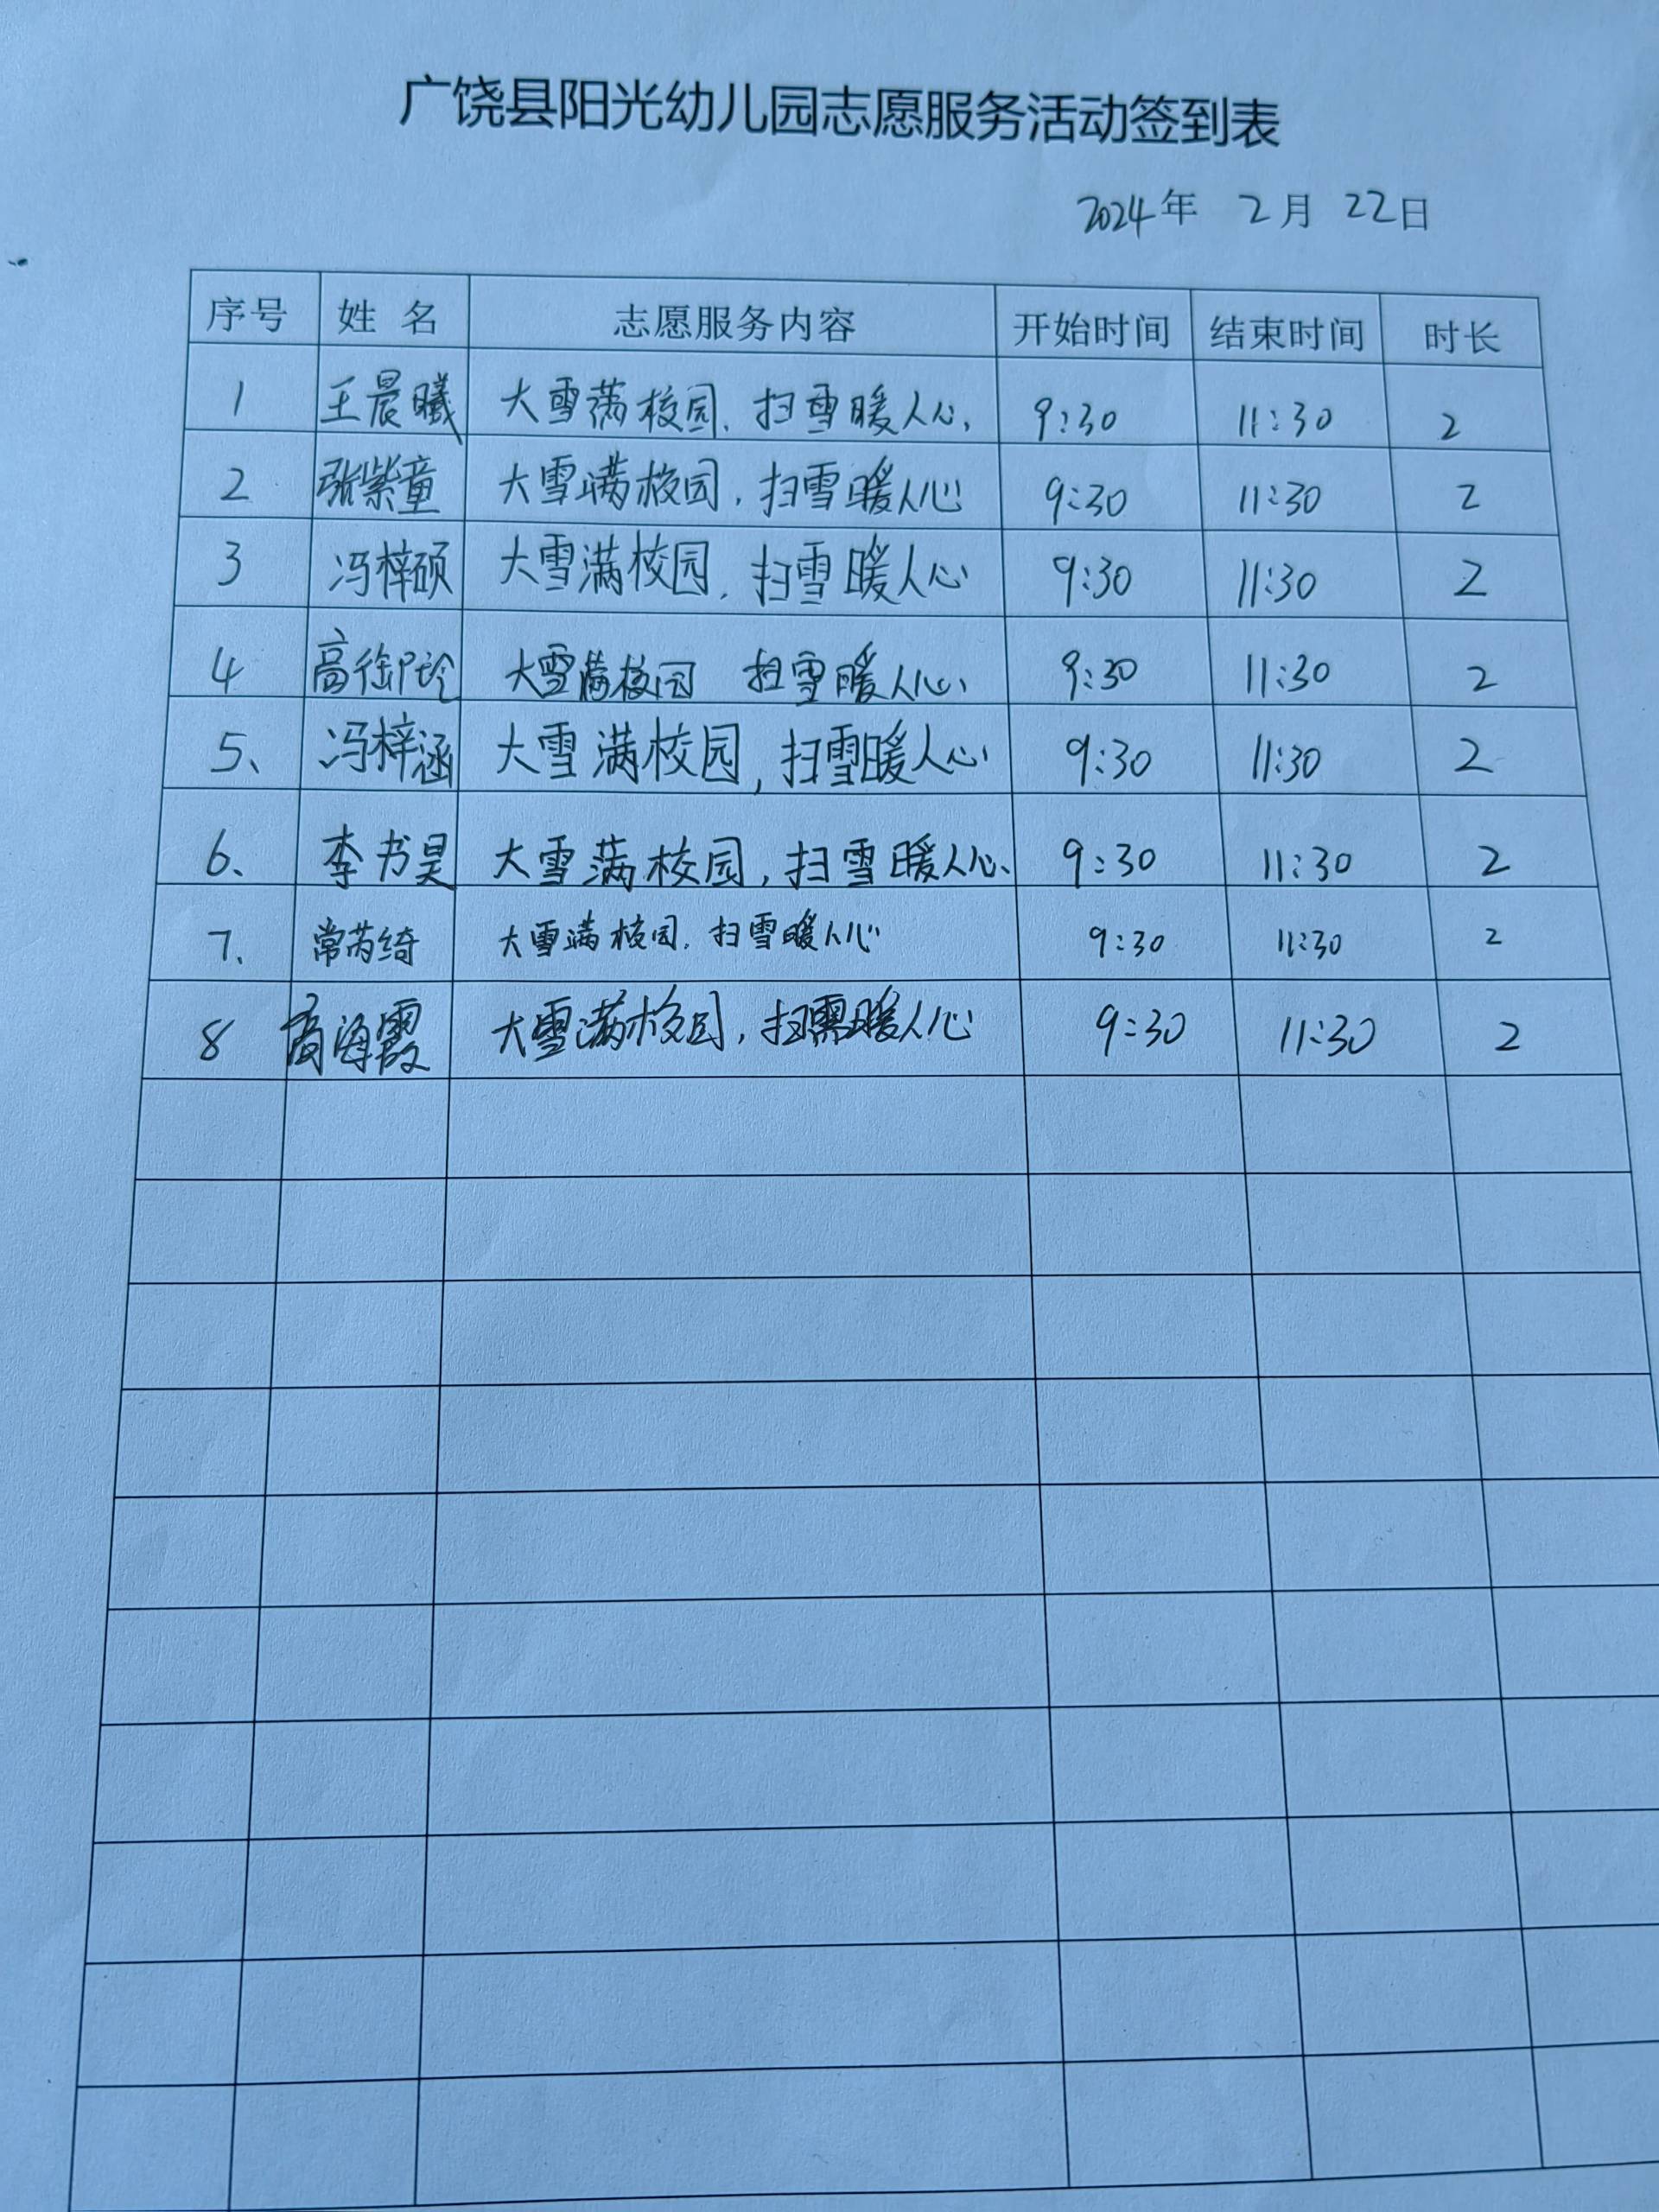 广饶县阳光幼儿园志愿服务活动签到表
2024年 2月 22日
序号 姓名 志愿服务内容 开始时间 结束时间 时长
1 王晨曦 大雪满校园，扫雪暖人心, 9:30 11:30 2
2 张紫童 大雪满校园，扫雪暖人心 9:30 11:30 2
3 冯梓硕 大雪满校园，扫雪暖人心 9:30 11:30 2
4 大雪满校园 扫雪暖人心、 9:30 11:30 2
5、 冯梓涵 大雪满校园，扫雪暖人心 9:30 11:30 2
6、 李书昊 大雪满校园，扫雪暖人心、 9:30 11:30 2
7、 常芮绮 大雪满校园，扫雪暖人心 9:30 11:30 2
8 高海霞 大雪满校园，扫雪暖人心 9:30 11:30 2